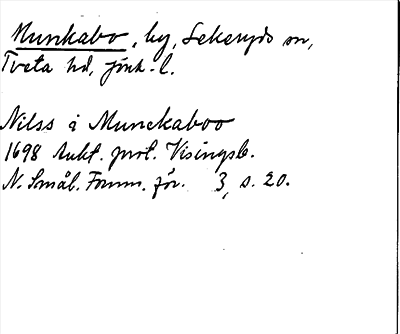 Munkabo, by, Lekeryds sn,
Tveta hd, Jönk. l.
Nilss i Munckaboo
1698 Aukt. prot. Visingsb.
N. Smål. Fornm. för. 3, s. 20.